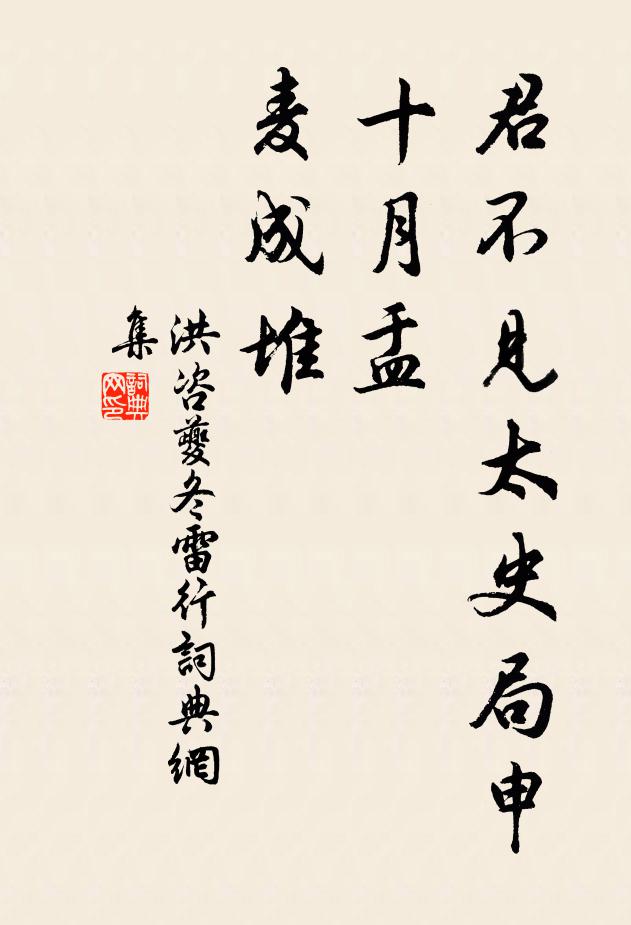 君不見太史局申
十月孟
麦成堆
洪咨夔冬雷行詞典網
集
詞典
网印